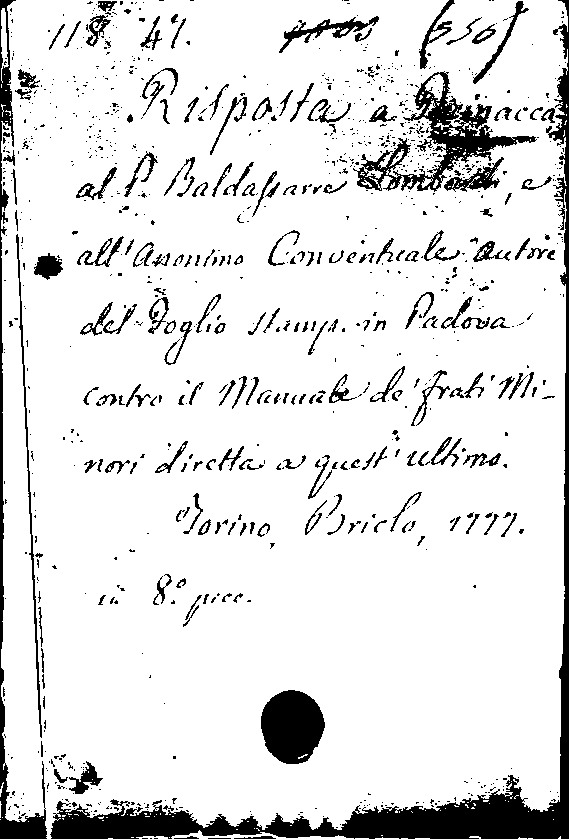 118 47. (556)
Risposta a
al P. Baldassarre Lombardi, e
all' Anonimo Conventuale autore
del Foglio stamp. in Padova
contro il Manuale de' frati Mi-
nori diretta a quest' ultimo.
Torino, Briolo, 1777.
in 8.° picc.